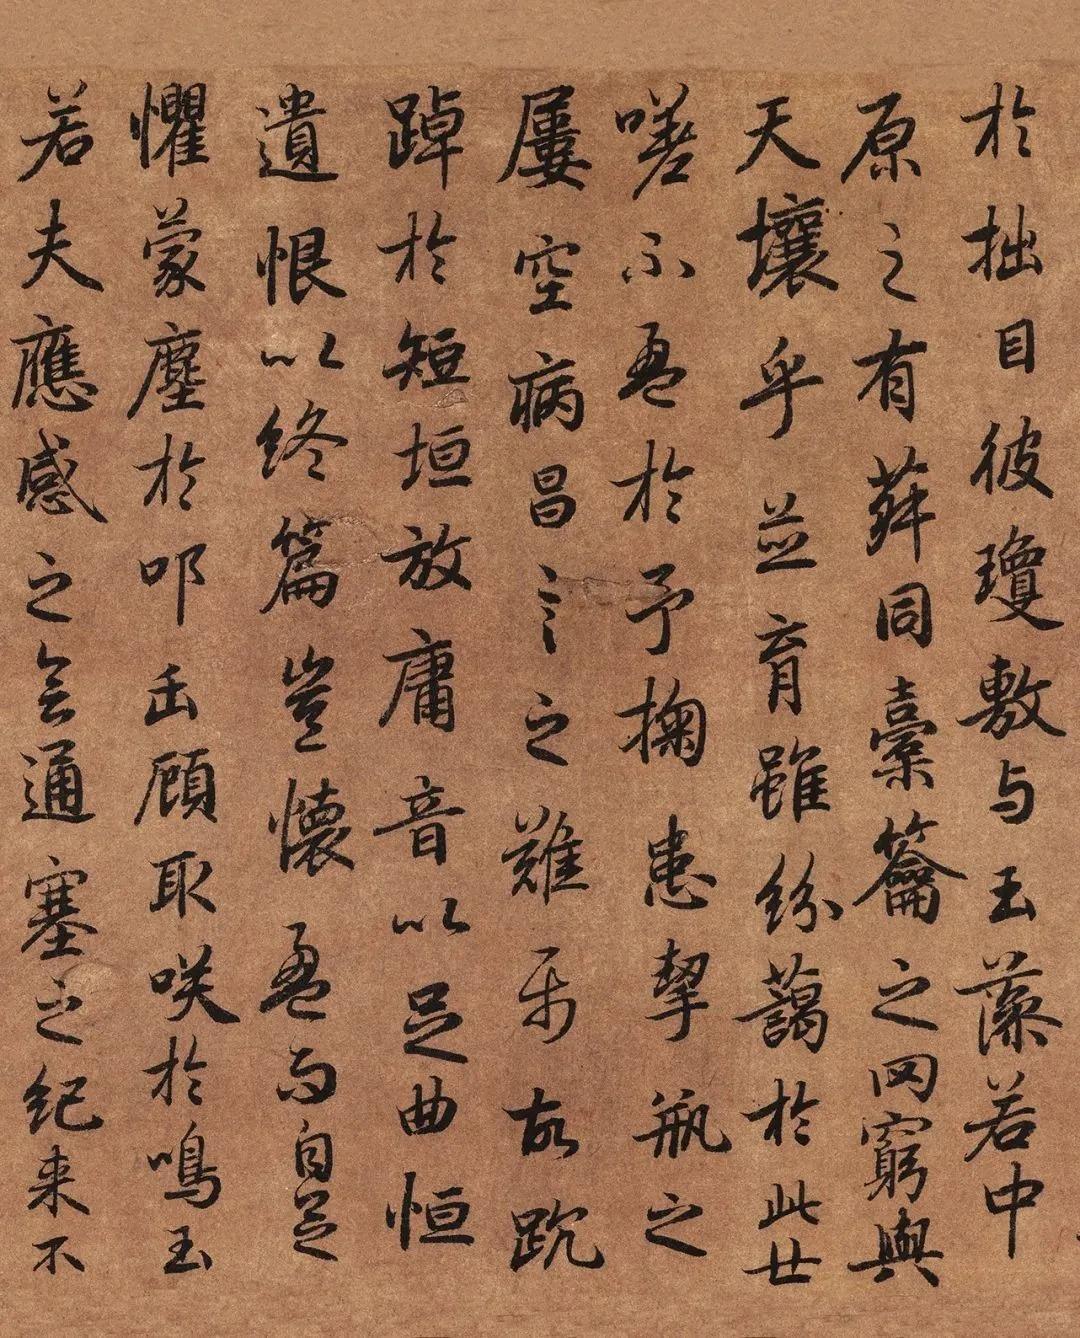 於拙目彼瓊敷与玉藻若中
原之有菽同橐籥之罔窮與
天壤乎並育雖紛藹於此世
嗟不盈於予掬患挈瓶之
屢空病昌言之難属故踸
踔於短垣放庸音以足曲恒
遺恨以終篇豈懷盈而自足
懼蒙塵於叩缶顧取咲於鳴玉
若夫應感之會通塞之紀来不